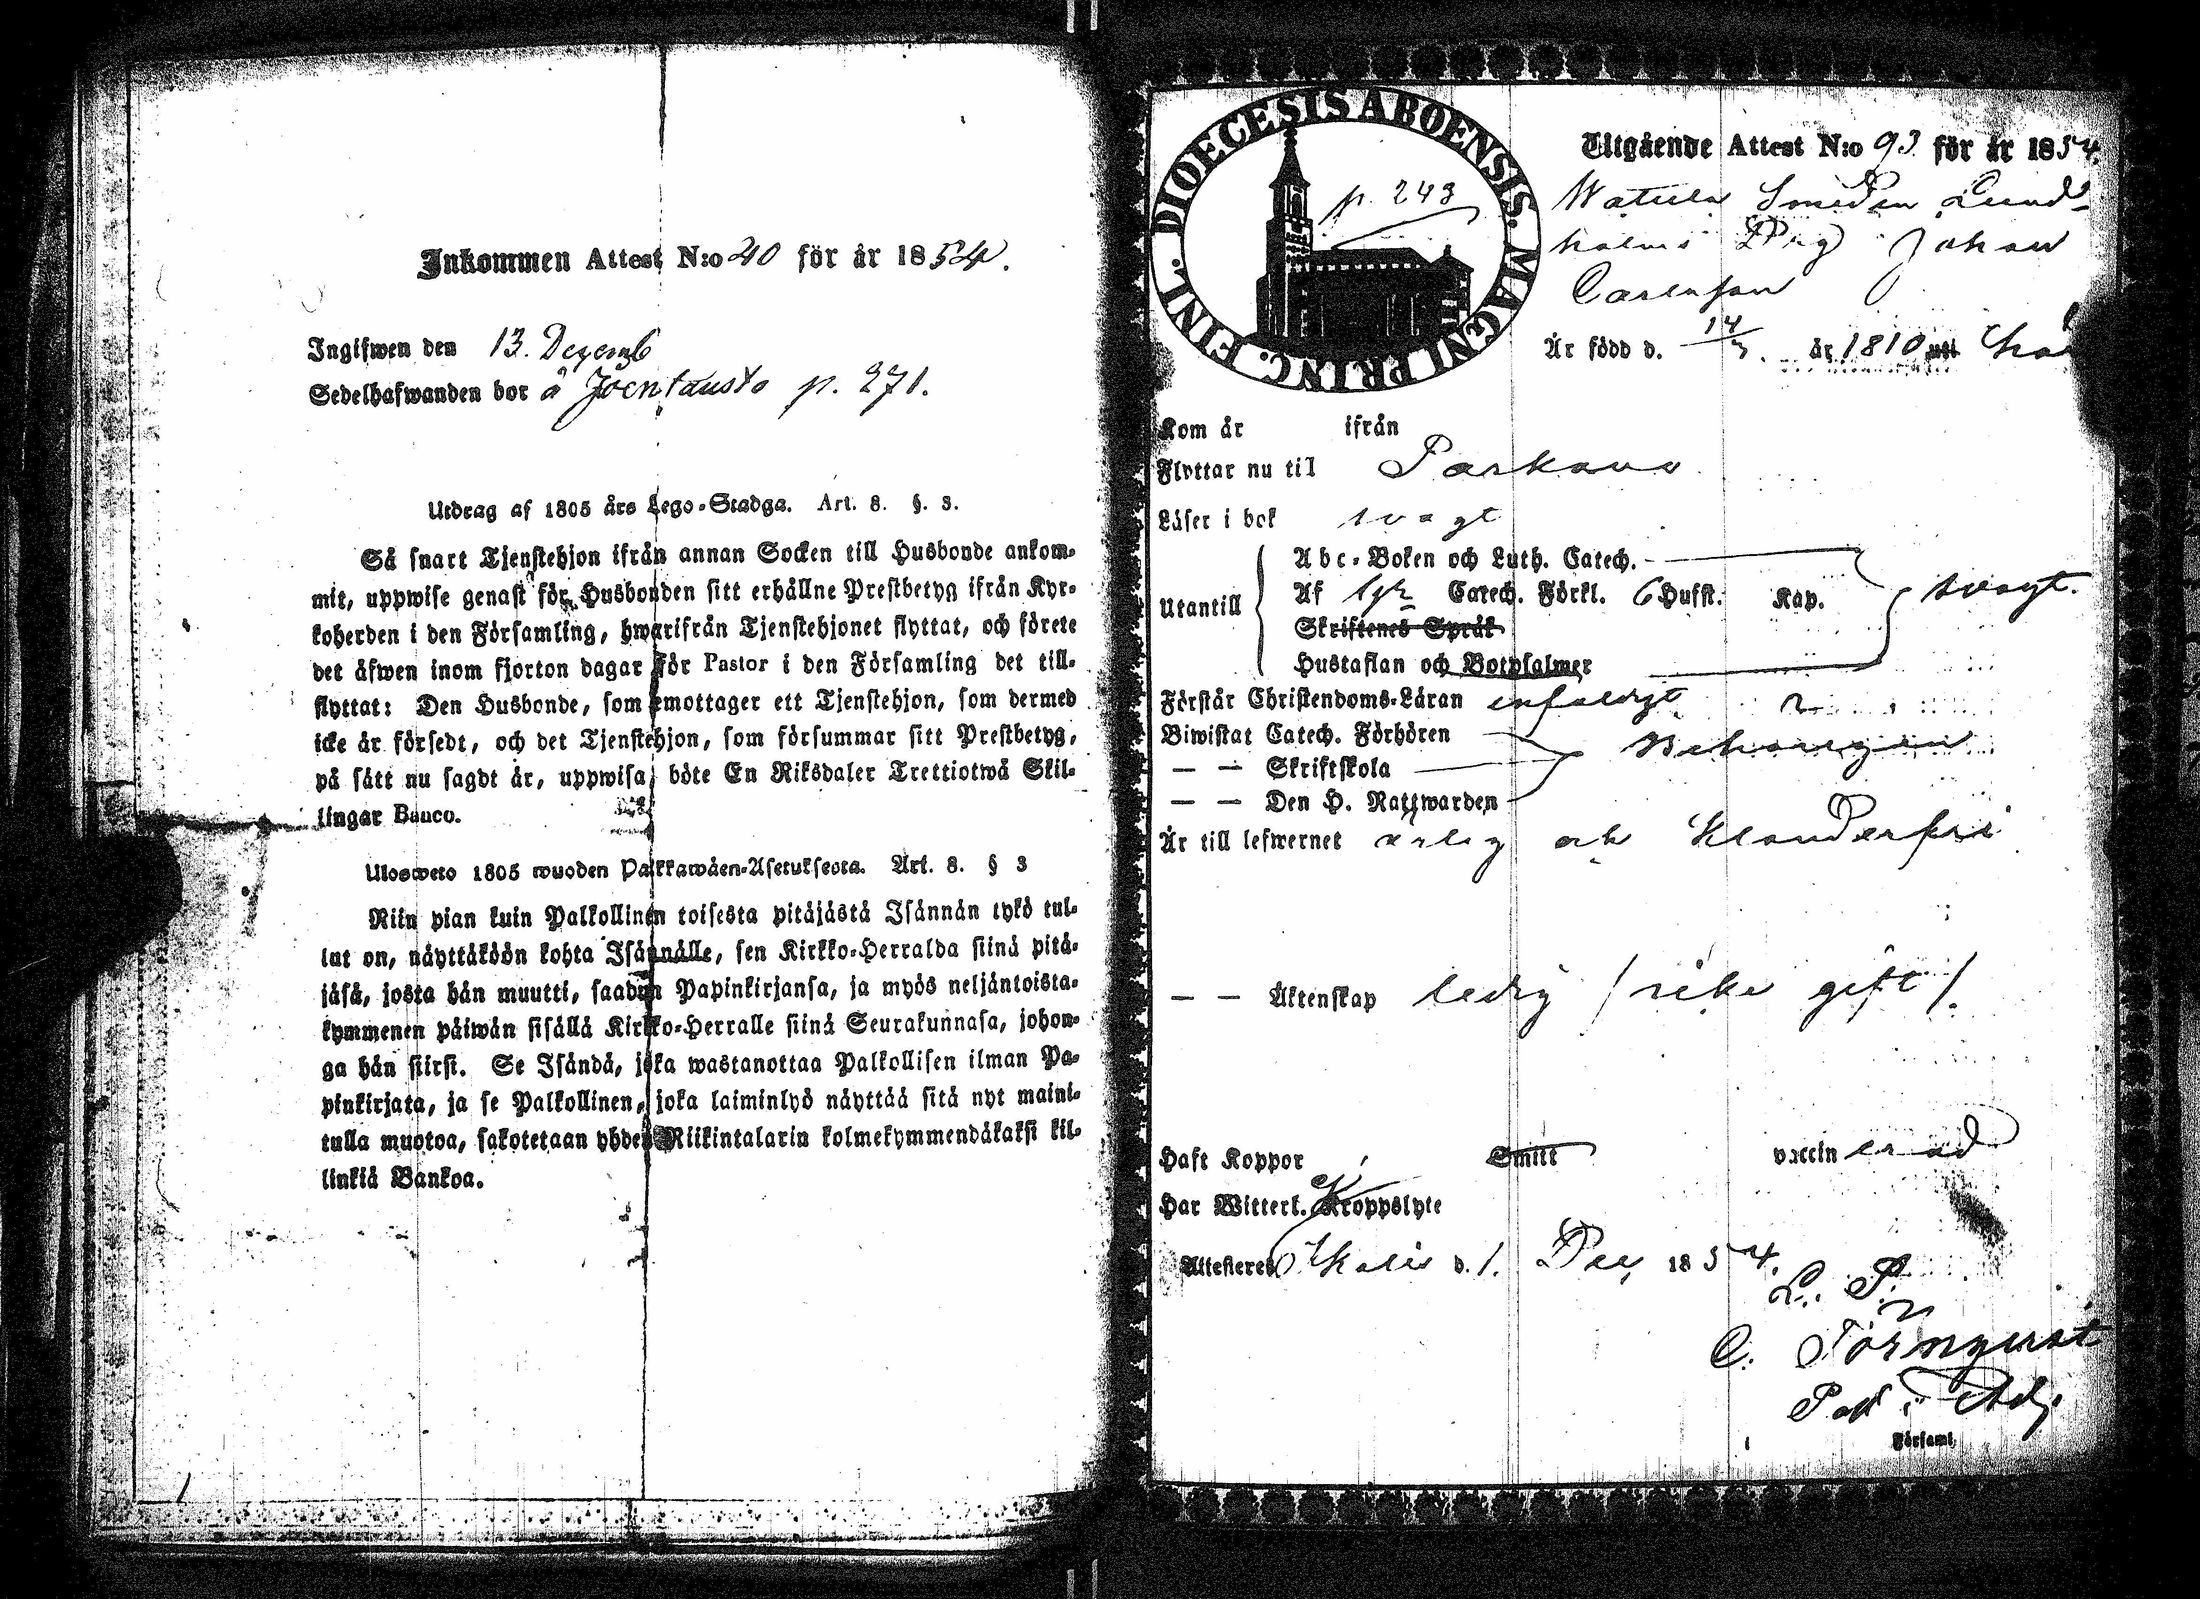 Inkommen Attest N:o 40 för år 1854.
Ingifwen den 13. Decemb
Sedelhafwanden bor å Joentausta p. 271.
Utdrag af 1805 års Lego-Stadga. Art. 8. §. 3.
Så snart Tjenstehjon ifrån annan Socken till Husbonde ankom-
mit, uppwise genast för Husbonden sitt erhållne Prestbetyg ifrån Kyr-
koherden i den Församling, hwarifrån Tjenstehjonet flyttat, och förete
det äfwen inom fjorton dagar för Pastor i den Församling det till-
flyttat: Den Husbonde, som emottager ett Tjenstehjon, som dermed
icke är försedt, och det Tjenstehjon, som försummar sitt Prestbetyg,
på sätt nu sagdt är, uppwisa, böte En Riksdaler Trettiotwå Skil-
lingar Banco.
Ulosweto 1805 wuoden Palkkawäen-Asetuksesta. Art. 8. § 3
Niin pian kuin Palkollinen toisesta pitäjästä Isännän tykö tul-
lut on, näyttäköön kohta Isännälle, sen Kirkko-Herralda siinä pitä-
jäsä, josta hän muutti, saadun Papinkirjansa, ja myös neljäntoista-
kymmenen päiwän sisällä Kirkko-Herralle siinä Seurakunnasa, johon-
ga hän siirsi. Se Isändä, joka wastanottaa Palkollisen ilman Pa-
pinkirjata, ja se Palkollinen, joka laiminlyö näyttää sitä nyt maini-
tulla muotoa, sakotetaan yhden Riikintalarin kolmekymmendäkaksi kil-
linkiä Bankoa.
DIOECESIS ABOENSIS. MAGNI PRINC. FINL.
p. 243
Utgående Attest N:o 93 för år 1854.
Smeden Lund-
holms Drg Johan
Carlsson
Är född d. 14/3. år 1810 uti
Kom år ifrån
Flyttar nu til Parkano
Läser i bok svagt
Utantill
Abc-Boken och Luth. Catech.
Af Catech. Förkl. 6 Hufst. Kap. svagt.
Skriftenes Språk
Hustaflan och Botpsalmer
Förstår Christendoms-Läran enfaldigt
Biwistat Catech. Förhören behörigen
— — Skriftskola
— — Den H. Nattwarden
Är till lefwernet ärlig och klanderfri
— — Äktenskap ledig /icke gift/.
Haft Koppor Smitt vaccinerad
Har Witterl. Kroppslyte
Attesteras d. 1. Dec. 1854.
L. S.
C. Törnqvist
Past. Adj.
Församl.